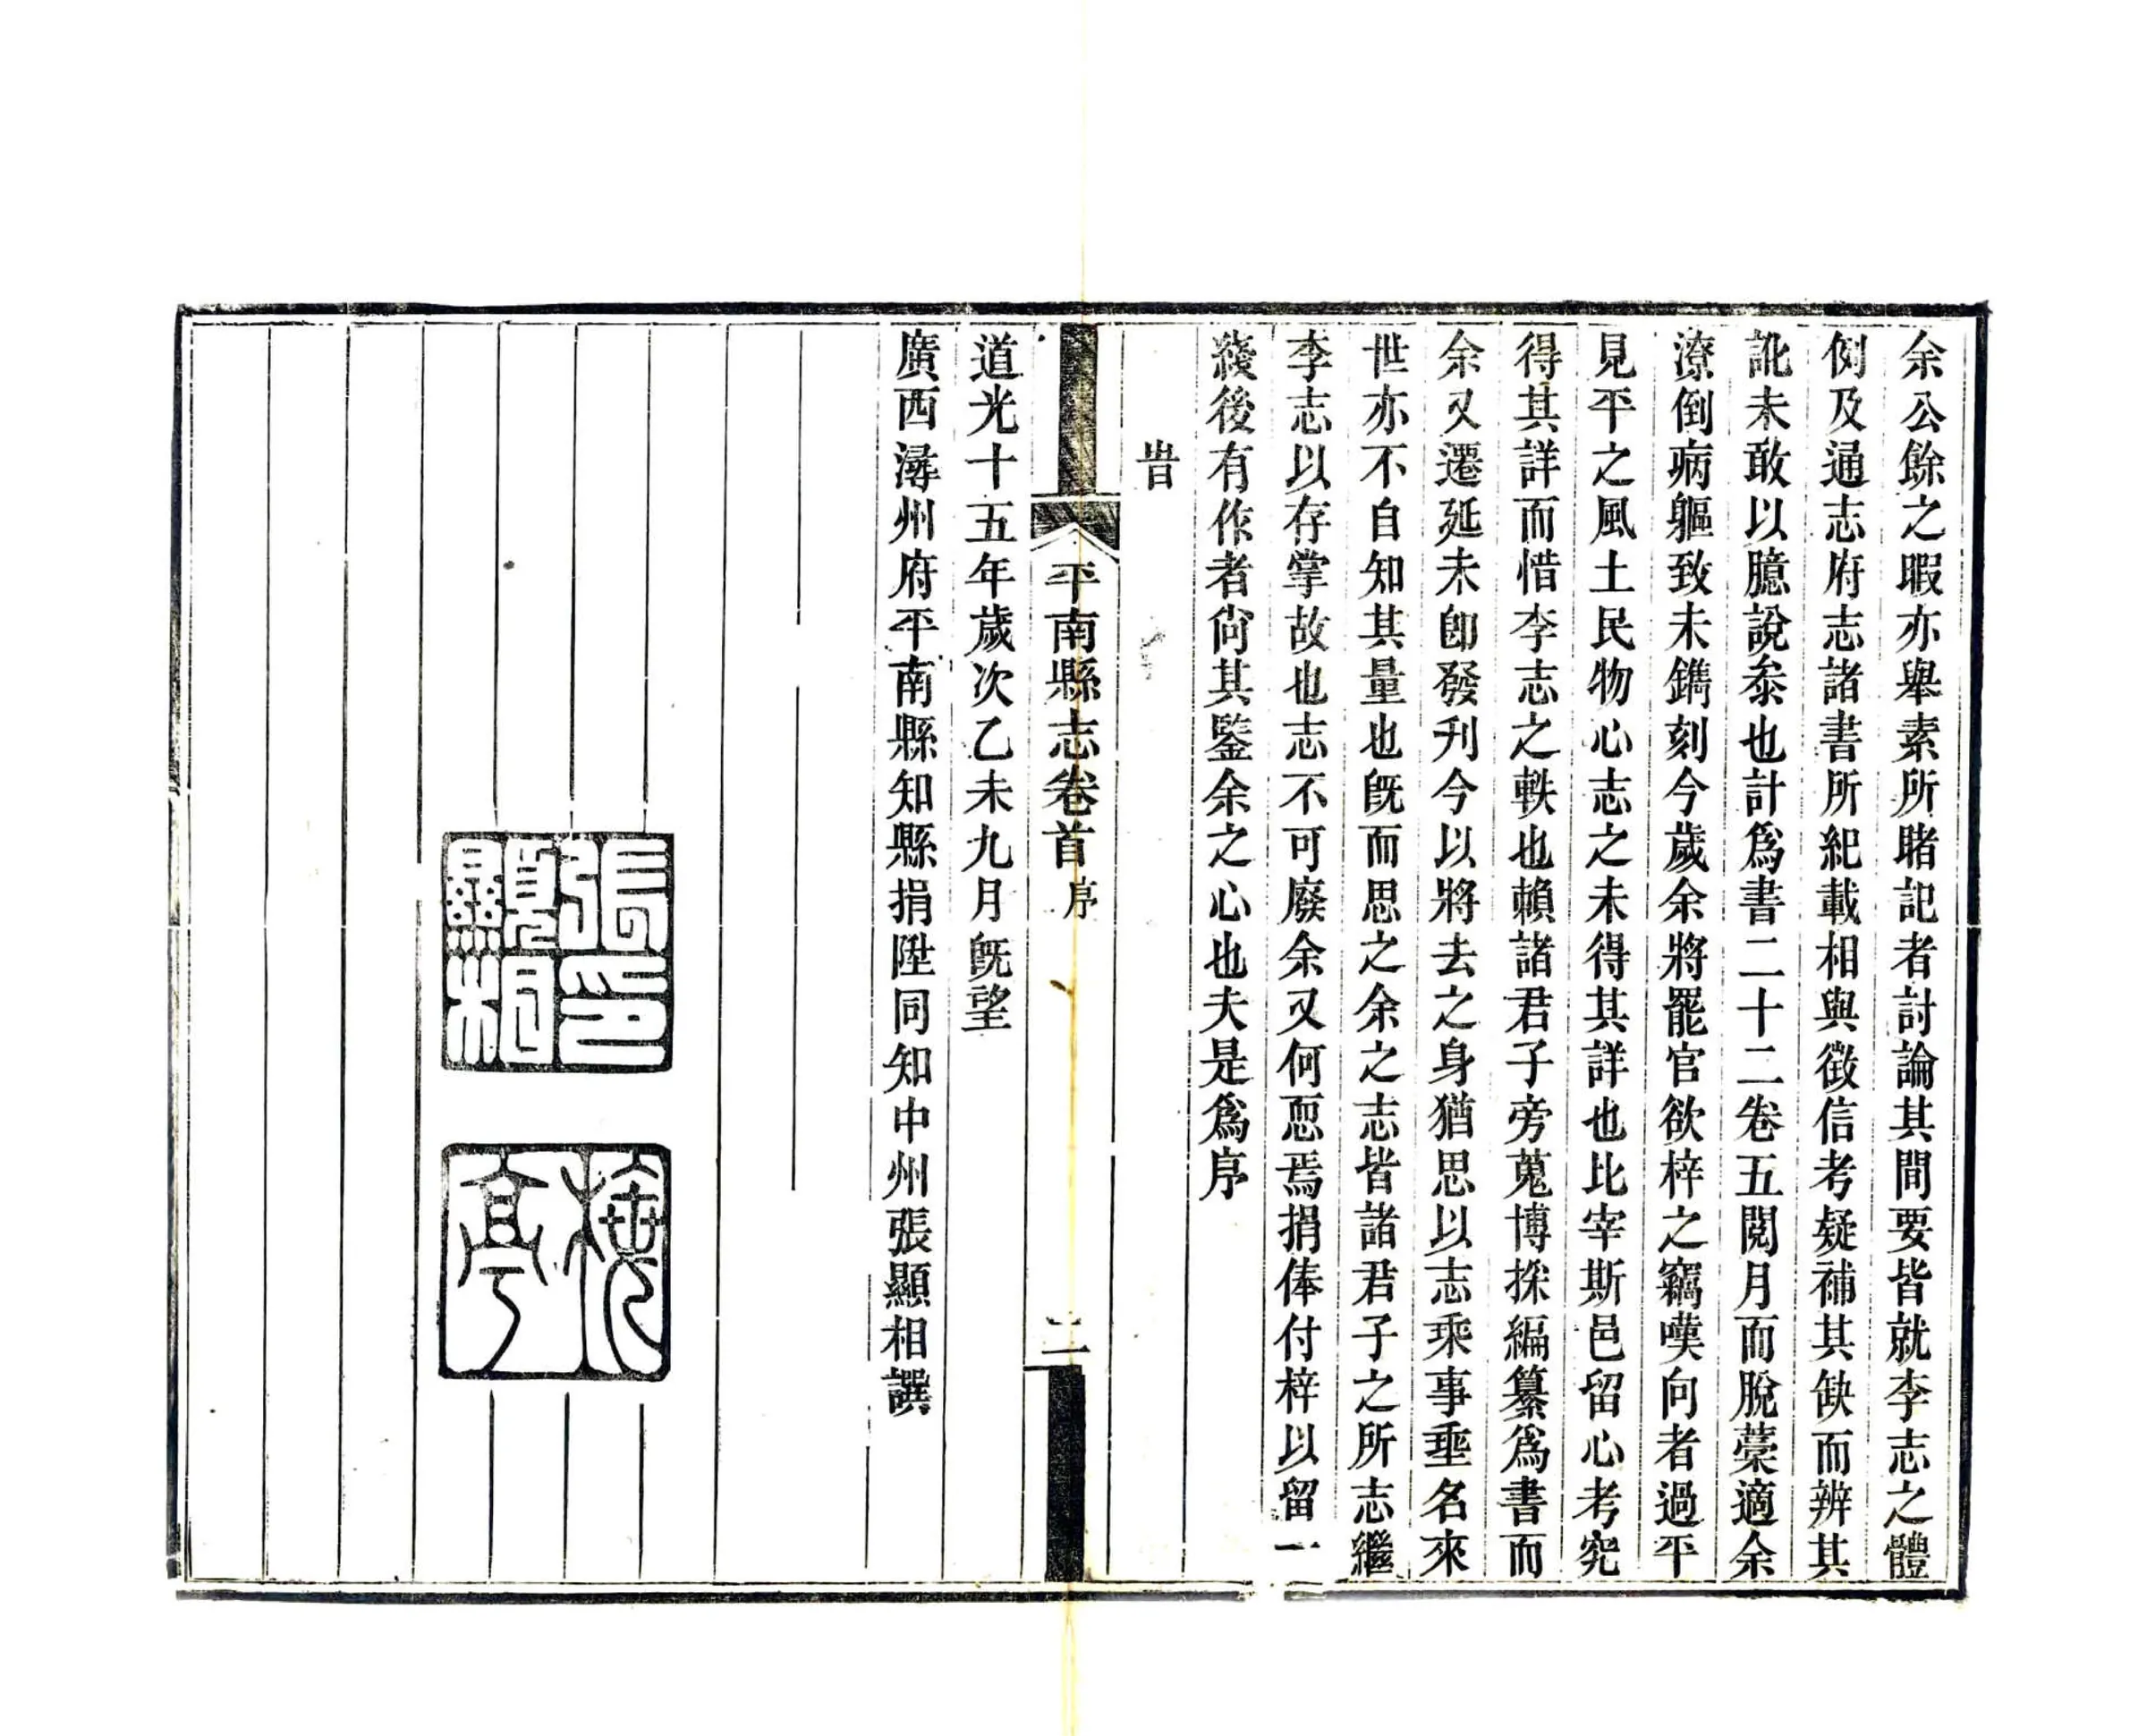 余公餘之暇亦舉素所睹記者討論其間要皆就李志之體
例及通志府志諸書所紀載相與徵信考疑補其缺而辨其
訛未敢以臆說叅也計爲書二十二卷五閱月而脫藁適余
潦倒病軀致未鐫刻今歲余將罷官欲梓之竊嘆向者過平
見平之風土民物心志之未得其詳也比宰斯邑留心考究
得其詳而惜李志之軼也賴諸君子旁蒐博採編纂爲書而
余又遷延未卽發刋今以將去之身猶思以志乘事垂名來
世亦不自知其量也旣而思之余之志皆諸君子之所志繼
李志以存掌故也志不可廢余又何恧焉捐俸付梓以留一
綫後有作者尙其鑒余之心也夫是爲序
旹
平南縣志卷首
序
二
道光十五年歲次乙未九月旣望
廣西潯州府平南縣知縣捐陞同知中州張顯相譔
張顯相印
梅亭